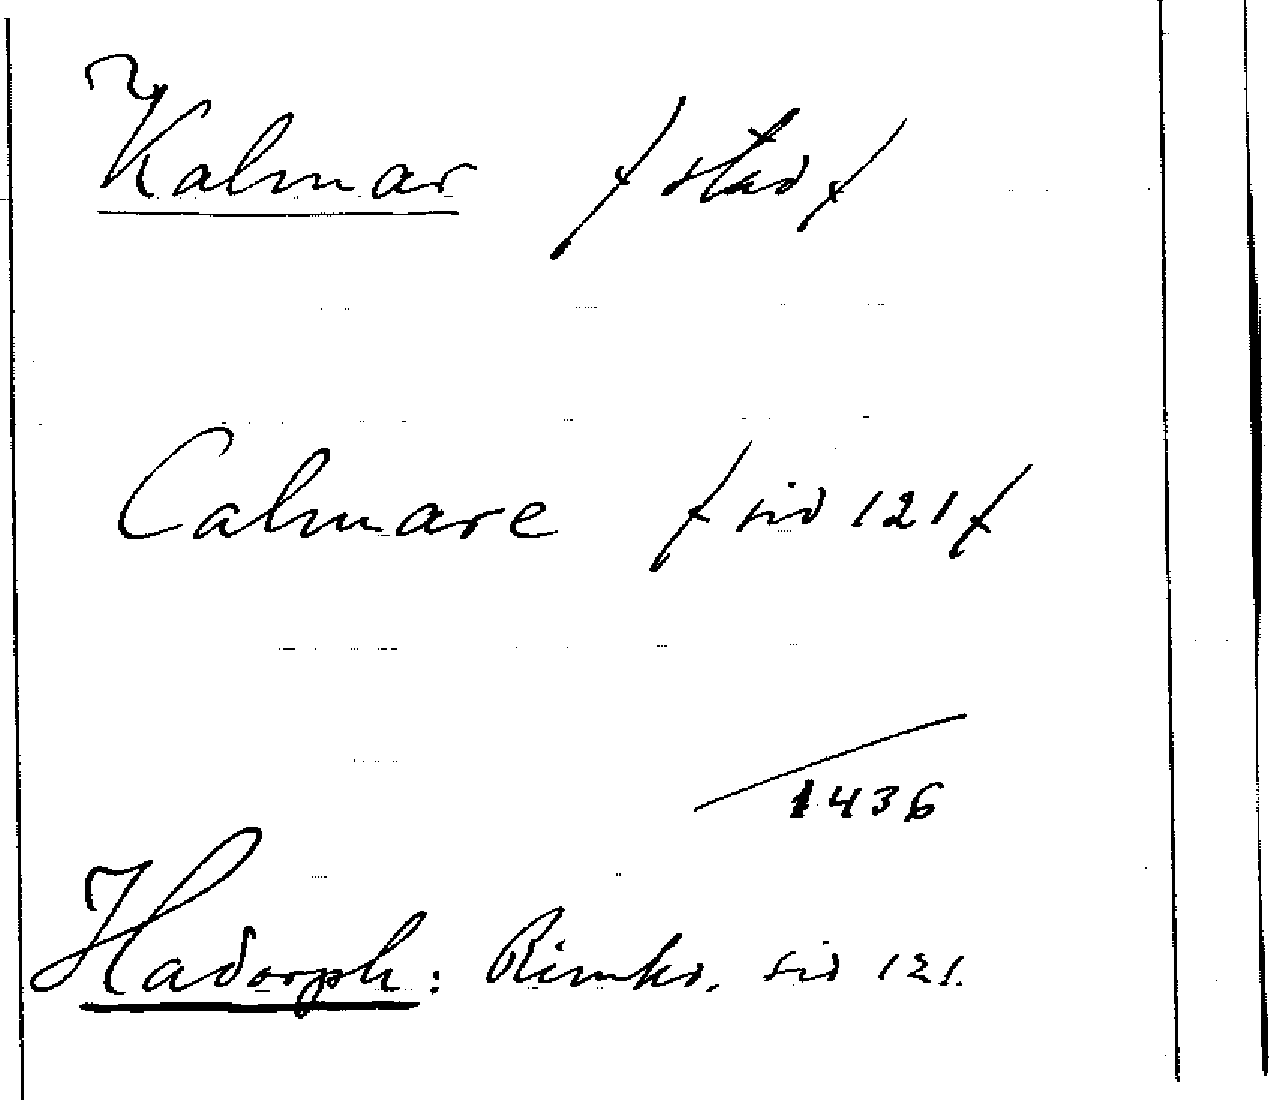 Kalmar /stad/
Calmare /sid 121/
1436
Hadorph: Rimkr. sid 121.